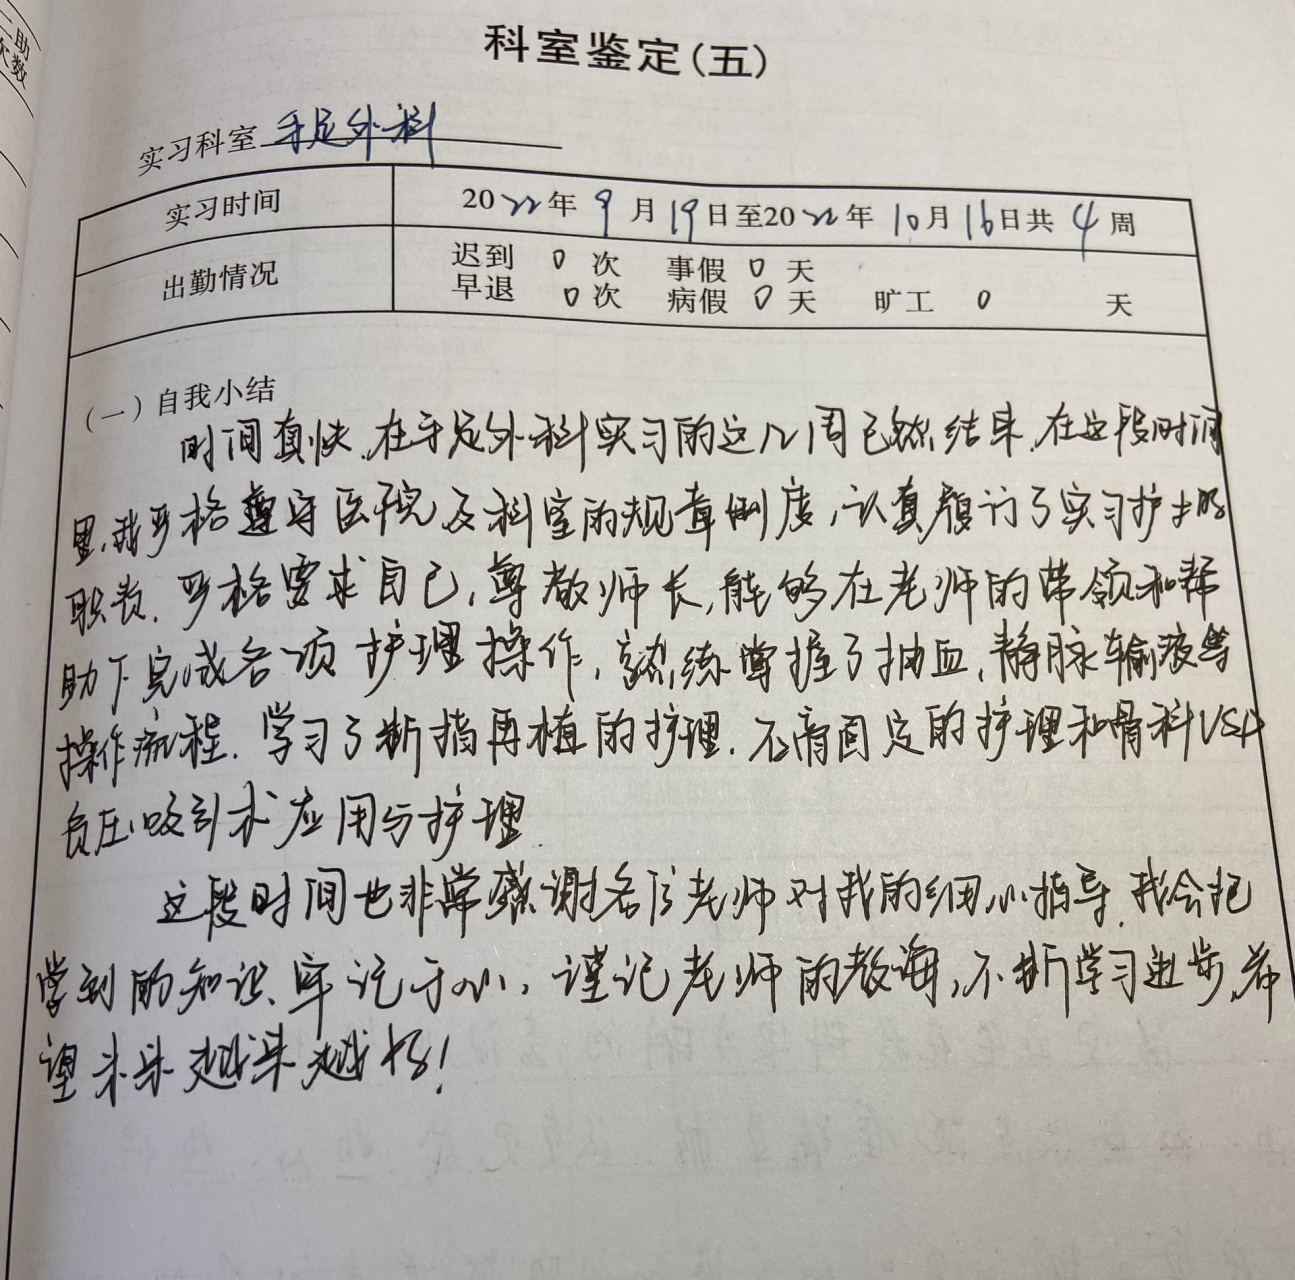 二助
次数
科室鉴定(五)
实习科室 手足外科
实习时间 2022年9月19日至2022年10月16日共4周
出勤情况 迟到 0 次 事假 0 天
早退 0 次 病假 0 天 旷工 0 天
(一)自我小结
时间真快,在手足外科实习的这几周已然结束,在这段时间
里,我严格遵守医院及科室的规章制度,认真履订了实习护士的
职责.严格要求自己,尊敬师长,能够在老师的带领和帮
助下完成各项护理操作,熟练掌握了抽血,静脉输液等
操作流程.学习了断指再植的护理.石膏固定的护理和骨科VSD
负压吸引术应用与护理
这段时间也非常感谢各位老师对我的细心指导.我会把
学到的知识、牢记于心,谨记老师的教诲,不断学习进步,希
望未来越来越好!